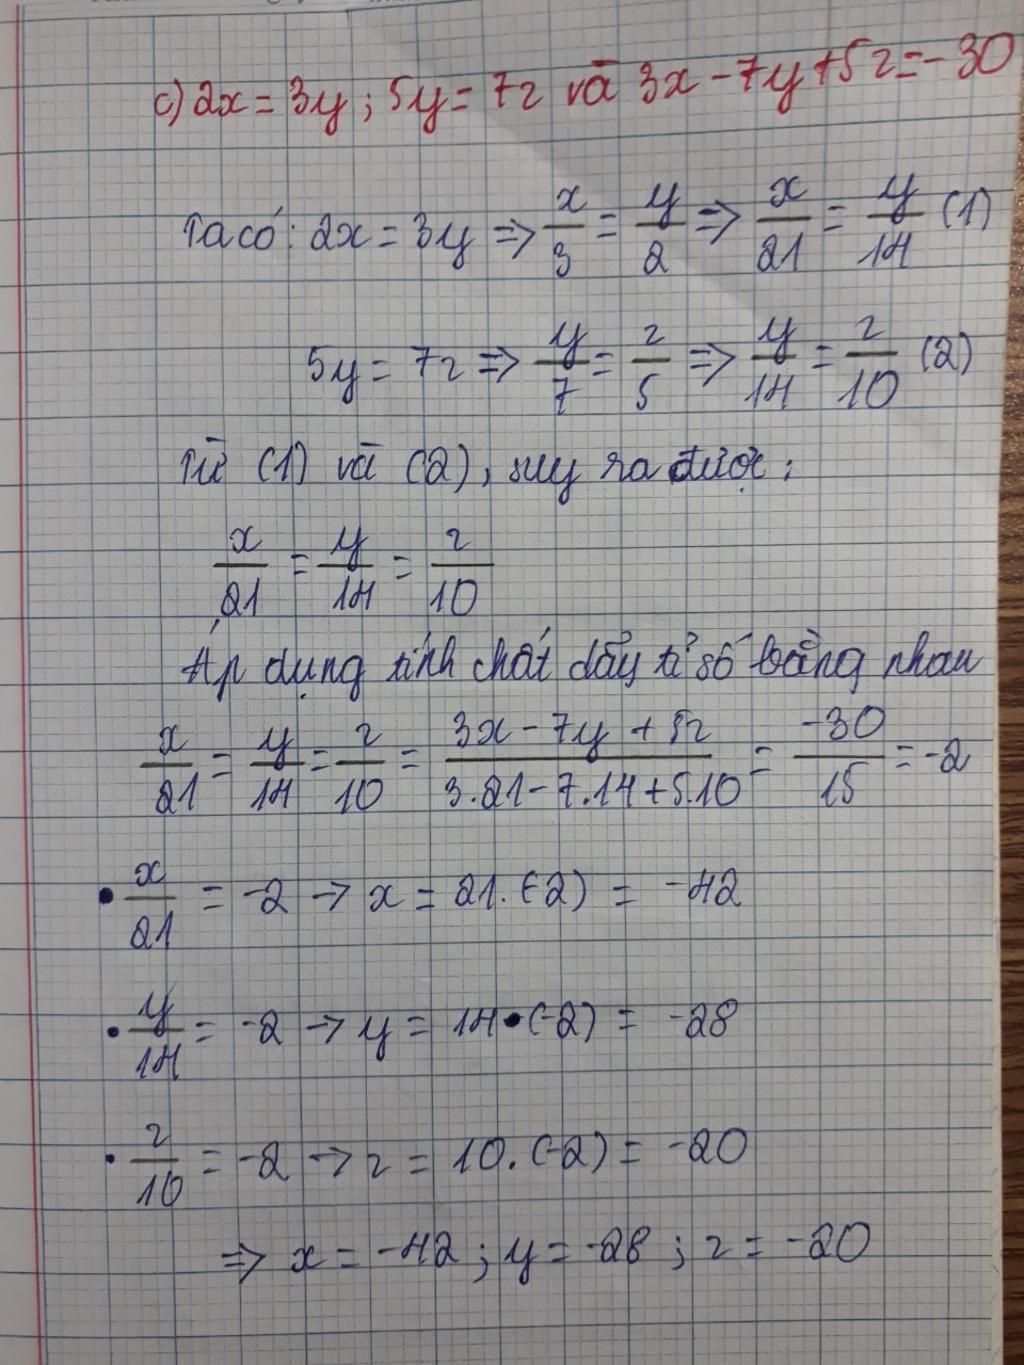 c) 2x = 3y ; 5y = 7z và 3x - 7y + 5z = -30
Ta có: 2x = 3y => x/3 = y/2 => x/21 = y/14 (1)
5y = 7z => y/7 = z/5 => y/14 = z/10 (2)
Từ (1) và (2), suy ra được:
x/21 = y/14 = z/10
Áp dụng tính chất dãy tỉ số bằng nhau
x/21 = y/14 = z/10 = (3x - 7y + 5z)/(3.21 - 7.14 + 5.10) = -30/15 = -2
• x/21 = -2 → x = 21.(-2) = -42
• y/14 = -2 → y = 14•(-2) = -28
• z/10 = -2 → z = 10.(-2) = -20
=> x = -42 ; y = -28 ; z = -20